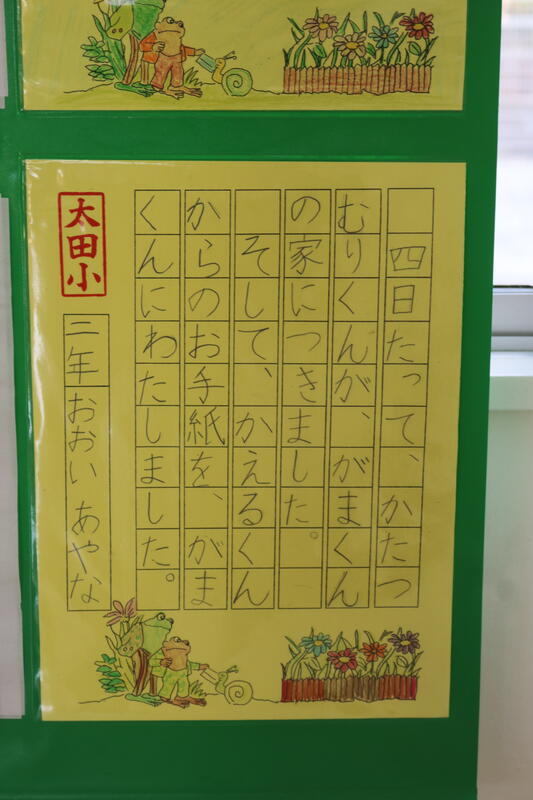 四日たって、かたつ
むりくんが、がまくん
の家につきました。
そして、かえるくん
からのお手紙を、がま
くんにわたしました。
太田小
二年 おおい あやな